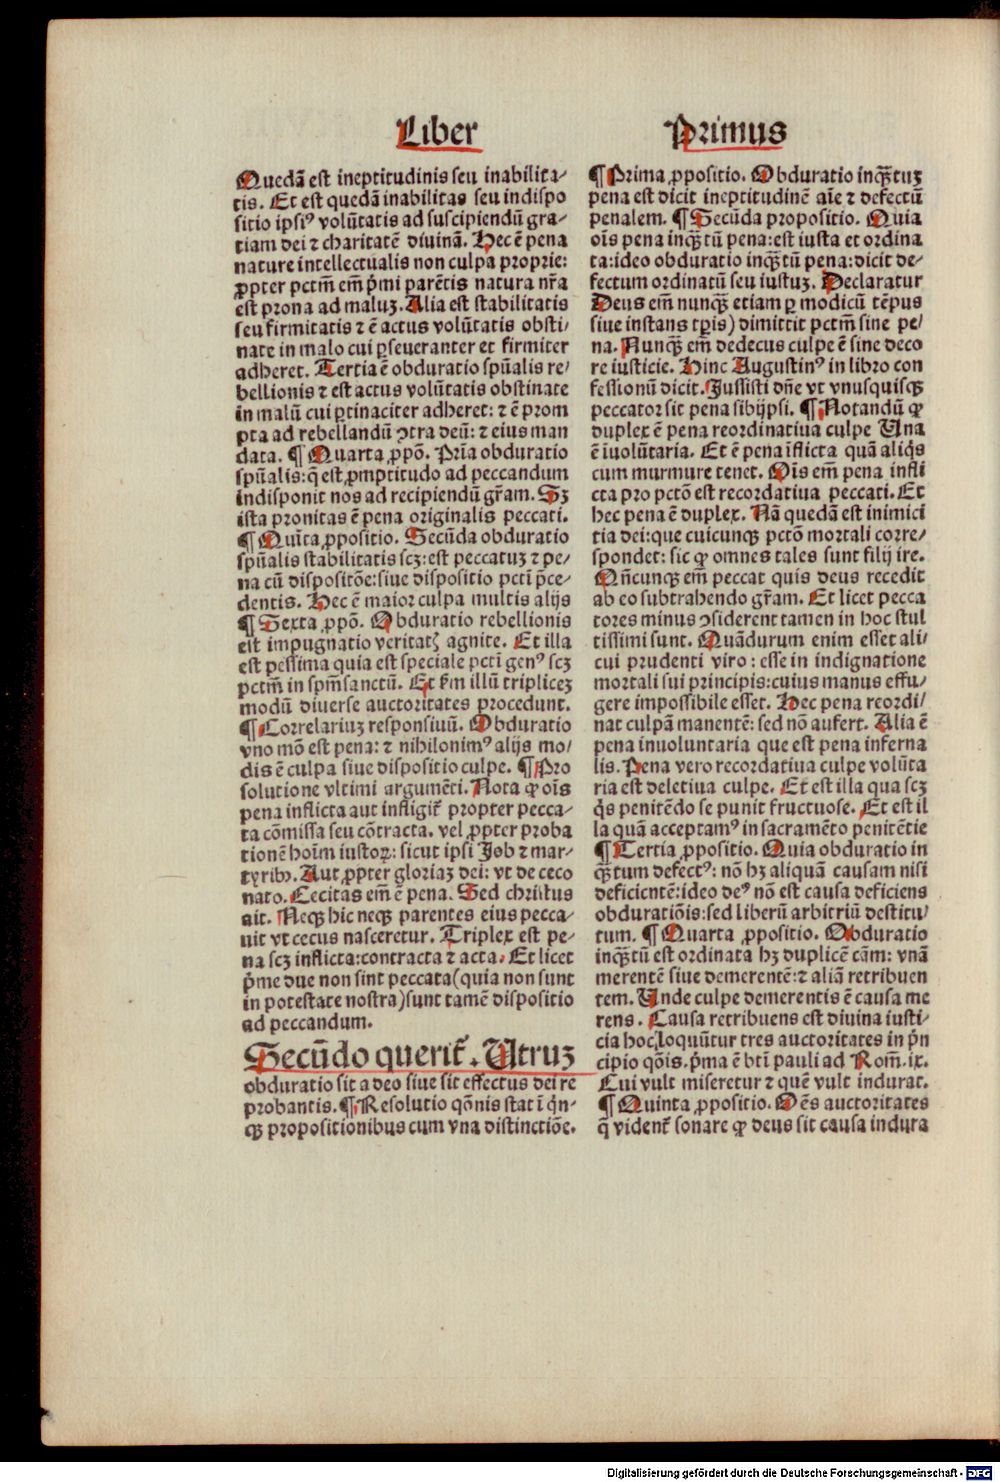 Liber Primus
Quedã est ineptitudinis seu inabilita⸗
tis. Et est quedã inabilitas seu indispo
sitio ipsiꝰ volũtatis ad suscipiendũ gra⸗
tiam dei ⁊ charitatẽ diuinã. Hec ẽ pena
nature intellectualis non culpa proprie:
ꝓpter pctm̃ em̃ p̃mi parẽtis natura nr̃a
est prona ad maluꝫ. Alia est stabilitatis
seu firmitatis ⁊ ẽ actus volũtatis obsti⸗
nate in malo cui ꝑseueranter et firmiter
adheret. Tertia ẽ obduratio spũalis re⸗
bellionis ⁊ est actus volũtatis obstinate
in malũ cui ꝑtinaciter adheret: ⁊ ẽ prom
pta ad rebellandũ ꝯtra deũ: ⁊ eius man
data. ¶ Quarta ꝓpõ. Pria obduratio
spũalis: q̃ est ꝓmptitudo ad peccandum
indisponit nos ad recipiendũ gr̃am. Sꝫ
ista pronitas ẽ pena originalis peccati.
¶ Quĩta ꝓpositio. Secũda obduratio
spũalis stabilitatis scꝫ: est peccatuꝫ ⁊ pe⸗
na cũ dispositõe: siue dispositio pcti p̃ce⸗
dentis. Hec ẽ maior culpa multis alijs
¶ Sexta ꝓpõ. Obduratio rebellionis
est impugnatio veritatꝭ agnite. Et illa
est pessima quia est speciale pcti genꝰ scꝫ
pctm̃ in spm̃sanctũ. Et k̃m illũ tripliceꝫ
modũ diuerse auctoritates procedunt.
¶ Correlariuꝫ responsiuũ. Obduratio
vno mõ est pena: ⁊ nihilonimꝰ alijs mo⸗
dis ẽ culpa siue dispositio culpe. ¶ Pro
solutione vltimi argumẽti. Nota ꝙ oĩs
pena inflicta aut infligit̃ propter pecca⸗
ta cõmissa seu cõtracta. vel ꝓpter proba
tionẽ hoĩm iustoꝝ: sicut ipsi Job ⁊ mar⸗
tyribꝫ. Aut ꝓpter gloriaꝫ dei: vt de ceco
nato. Cecitas em̃ ẽ pena. Sed christus
ait. Neqꝫ hic neqꝫ parentes eius pecca⸗
uit vt cecus nasceretur. Triplex est pe⸗
na scꝫ inflicta: contracta ⁊ acta. Et licet
p̃me due non sint peccata (quia non sunt
in potestate nostra) sunt tamẽ dispositio
ad peccandum.
Secũdo querit̃. Utruꝫ
obduratio sit a deo siue sit effectus dei re
probantis. ¶ Resolutio qõnis stat ĩ q̃n⸗
qꝫ propositionibus cum vna distinctiõe.
¶ Prima ꝓpositio. Obduratio inqꝫ̃tuꝫ
pena est dicit ineptitudinẽ aĩe ⁊ defectũ
penalem. ¶ Secũda propositio. Quia
oĩs pena inqꝫ̃tũ pena: est iusta et ordina
ta: ideo obduratio inqꝫ̃tũ pena: dicit de⸗
fectum ordinatũ seu iustuꝫ. Declaratur
Deus em̃ nunqꝫ̃ etiam ꝑ modicũ tẽpus
siue instans tꝑis) dimittit pctm̃ sine pe⸗
na. Nunqꝫ̃ em̃ dedecus culpe ẽ sine deco
re iusticie. Hinc Augustinꝰ in libro con
fessionũ dicit. Jussisti dñe vt vnusquisqꝫ
peccator sit pena sibijpsi. ¶ Notandũ ꝙ
duplex ẽ pena reordinatiua culpe Una
ẽ ĩuolũtaria. Et ẽ pena ĩflicta quã aliq̃s
cum murmure tenet. Oĩs em̃ pena infli
cta pro pctõ est recordatiua peccati. Et
hec pena ẽ duplex. Nã quedã est inimici
tia dei: que cuicunqꝫ pctõ mortali corre⸗
spondet: sic ꝙ omnes tales sunt filij ire.
Qñcunqꝫ em̃ peccat quis deus recedit
ab eo subtrahendo gr̃am. Et licet pecca
tores minus ꝯsiderent tamen in hoc stul
tissimi sunt. Quãdurum enim esset ali⸗
cui prudenti viro: esse in indignatione
mortali sui principis: cuius manus effu⸗
gere impossibile esset. Hec pena reordi⸗
nat culpã manentẽ: sed nõ aufert. Alia ẽ
pena inuoluntaria que est pena inferna
lis. Pena vero recordatiua culpe volũta
ria est deletiua culpe. Et est illa qua scꝫ
q̃s penitẽdo se punit fructuose. Et est il
la quã acceptamꝰ in sacramẽto penitẽtie
¶ Tertia ꝓpositio. Quia obduratio in
qꝫ̃tum est defectꝰ: nõ hꝫ aliquã causam nisi
deficientẽ: ideo deꝰ nõ est causa deficiens
obduratiõis: sed liberũ arbitriũ destitu⸗
tum. ¶ Quarta ꝓpositio. Obduratio
inqꝫ̃tũ est ordinata hꝫ duplicẽ cãm: vnã
merentẽ siue demerentẽ: ⁊ aliã retribuen
tem. Unde culpe demerentis ẽ causa me
rens. Causa retribuens est diuina iusti⸗
cia hoc loquũtur tres auctoritates in p̃n
cipio qõis. p̃ma ẽ bt̃i pauli ad Rom̃. ix.
Cui vult miseretur ⁊ quẽ vult indurat.
¶ Quinta ꝓpositio. Oẽs auctoritates
q̃ vident̃ sonare ꝙ deus sit causa indura
Digitalisierung gefördert durch die Deutsche Forschungsgemeinschaft - DFG